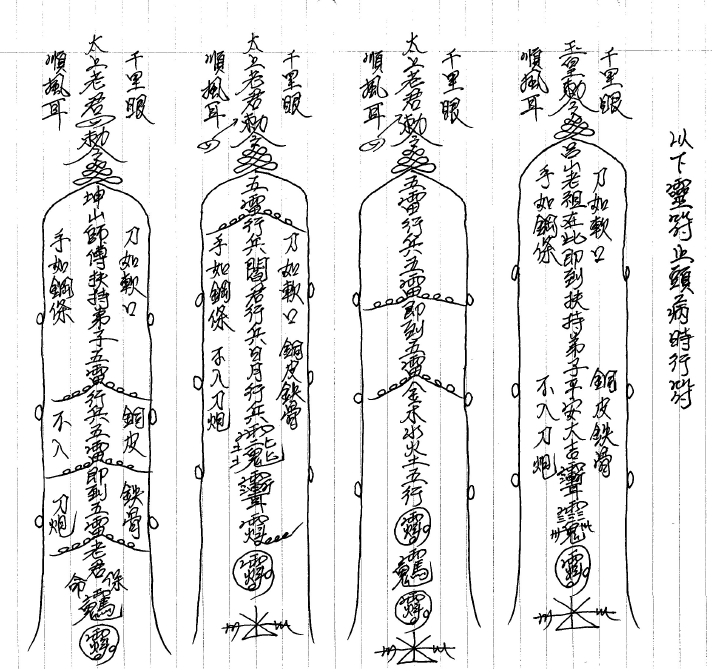 以下靈符止頭病時行符
千里眼
玉皇勅令
順風耳
呂山老祖在此即到扶持弟子平安大吉
刀如軟口
手如銅條
銅皮鉄骨
不入刀炮
千里眼
太上老君勅令
順風耳
五雷行兵五雷即到五雷金木水火土五行
千里眼
太上老君勅令
順風耳
五雷行兵閻君行兵日月行兵
刀如軟口
銅皮鉄骨
手如銅條
不入刀炮
千里眼
太上老君勅令
順風耳
坤山師傅扶持弟子五雷行兵五雷即到五雷老君
刀如軟口
銅皮
鉄骨
保
手如銅條
不入
刀炮
命